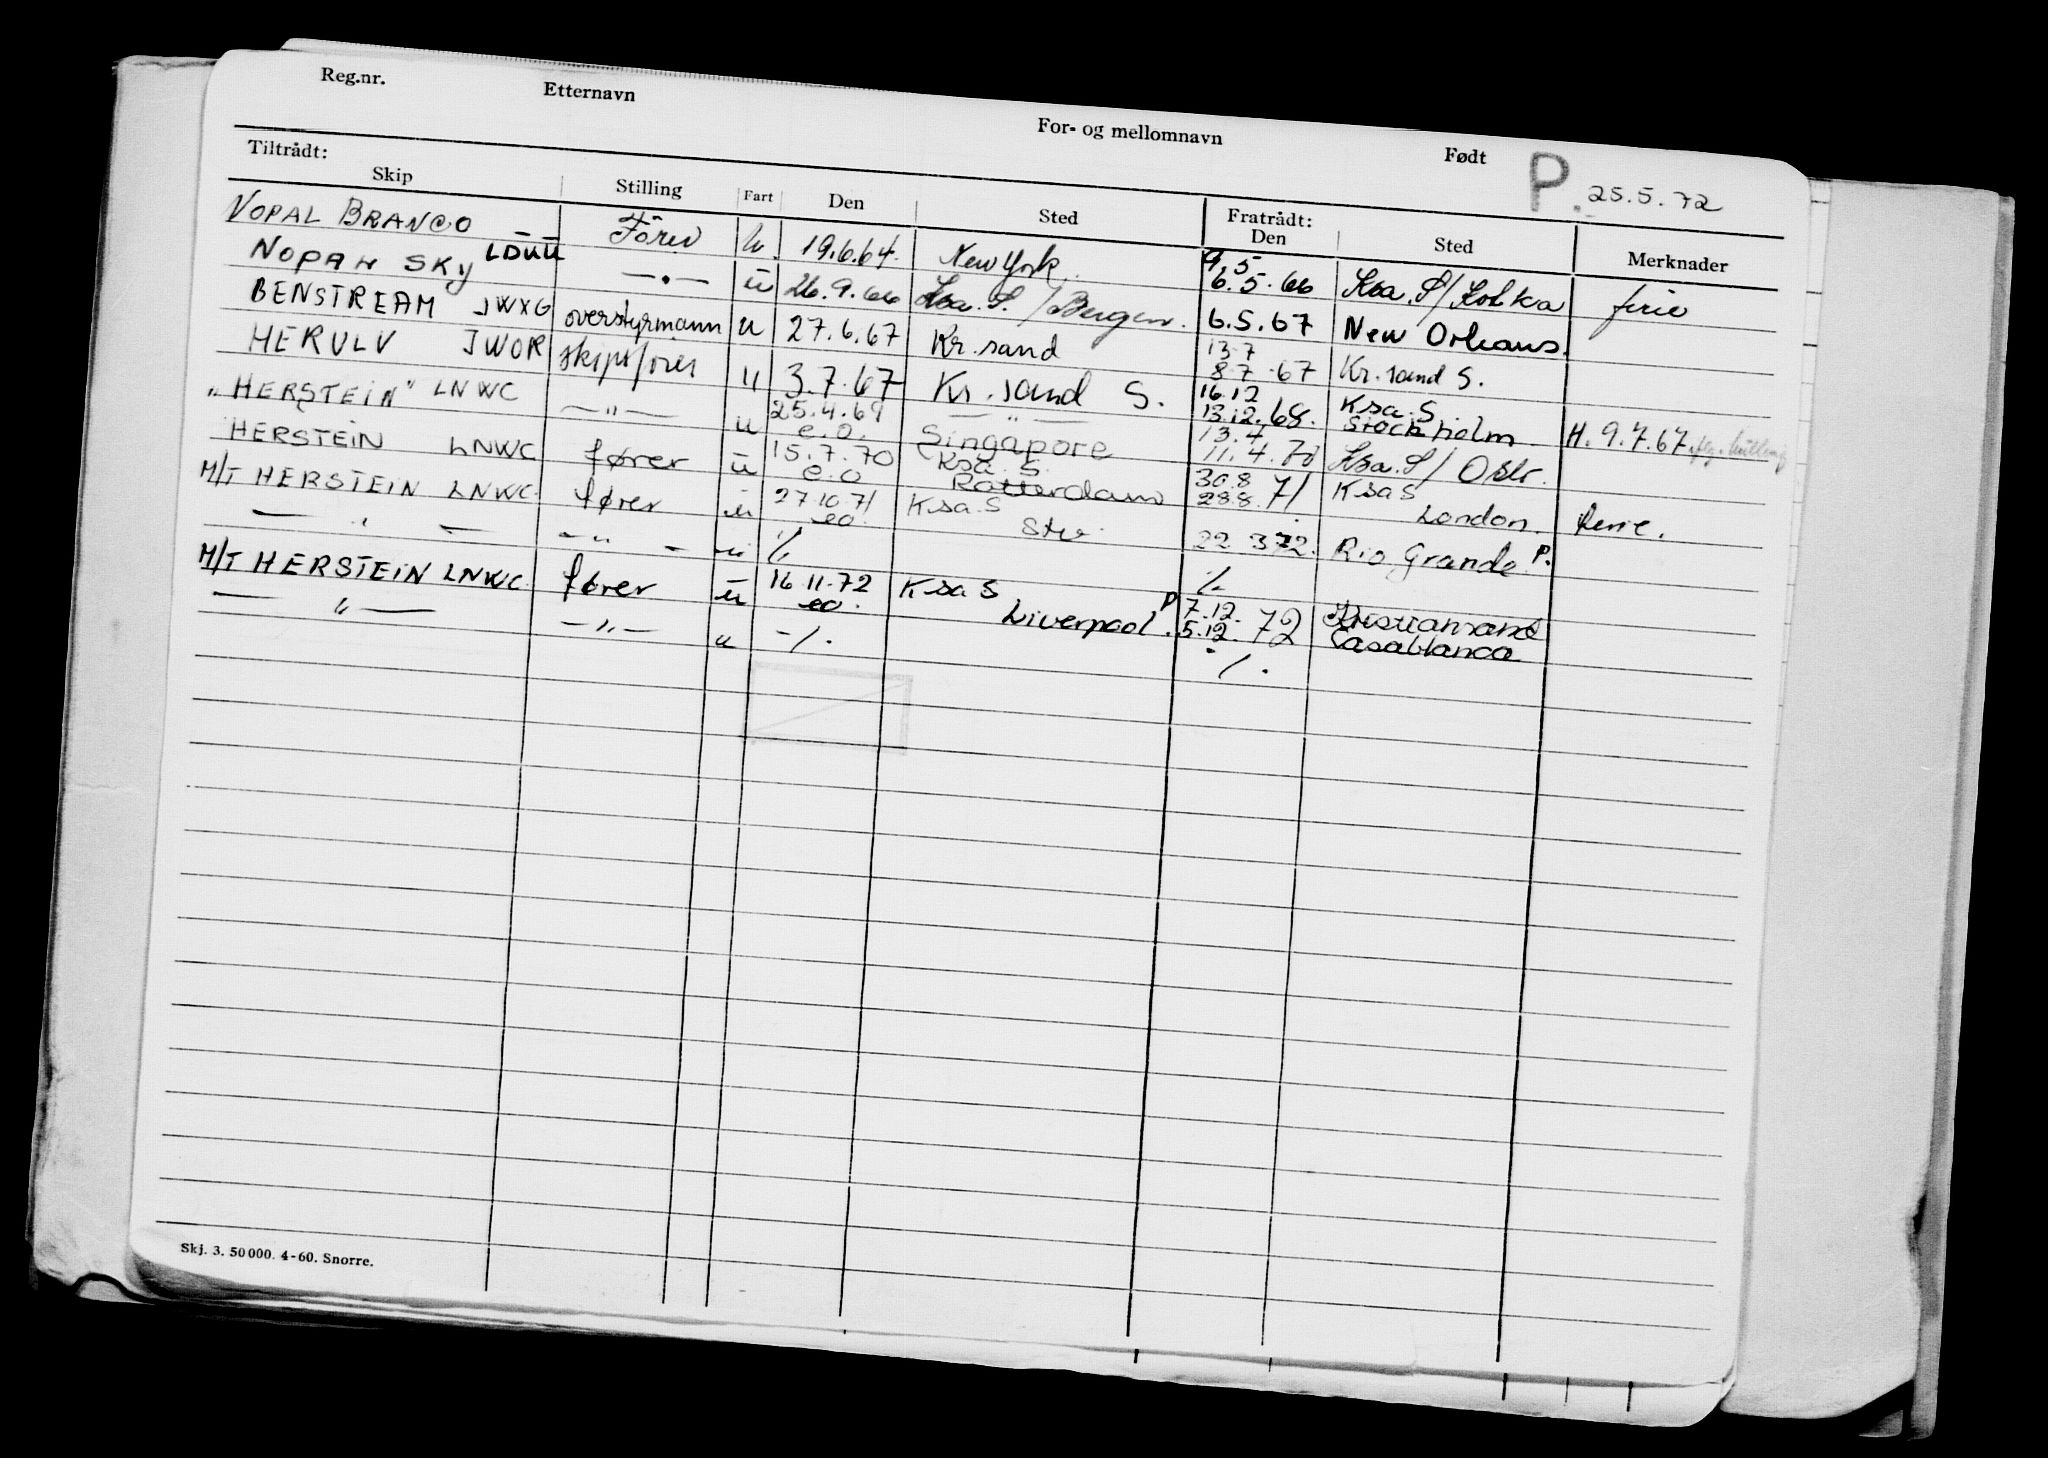 Reg.nr. Etternavn For- og mellomnavn Født P. 25.5.72
Tiltrådt: Fratrådt:
Skip Stilling Fart Den Sted Den Sted Merknader
NOPAL BRANCO Förer u. 19.6.64. New York. 9.5 6.5.66 Ksa. S/ ferie
SKY LDUU —.— u 26.9.66 Ksa. S. / Bergen. 6.5.67 New Orleans.
BENSTREAM JWXG overstyrmann u 27.6.67 Kr.sand 13.7 8.7.67 Kr.sand S.
HERULV JWOR skipsfører u 3.7.67 Kr.sand S. 16.12 13.12.68. Ksa. S. Stockholm H. 9.7.67.
"HERSTEIN" LNWC —"— u 25.4.69 e.o. —"— Singapore 13.4 11.4.70 Ksa. S/
HERSTEIN LNWC fører u 15.7.70 e.o Ksa. S. Rotterdam 30.8 28.8.71 Ksa S London. ferie.
M/T HERSTEIN LNWC. fører u 27.10.71 eo. Ksa. S 22.3.72. Rio Grande P.
— " — — " — u ./. ./.
M/T HERSTEIN LNWC. fører u 16.11.72 eo. Ksa S Liverpool P. 7.12. 5.12.72 Kristiansand Casablanca
— " — —"— u -/. ./.
Skj. 3. 50000. 4-60. Snorre.